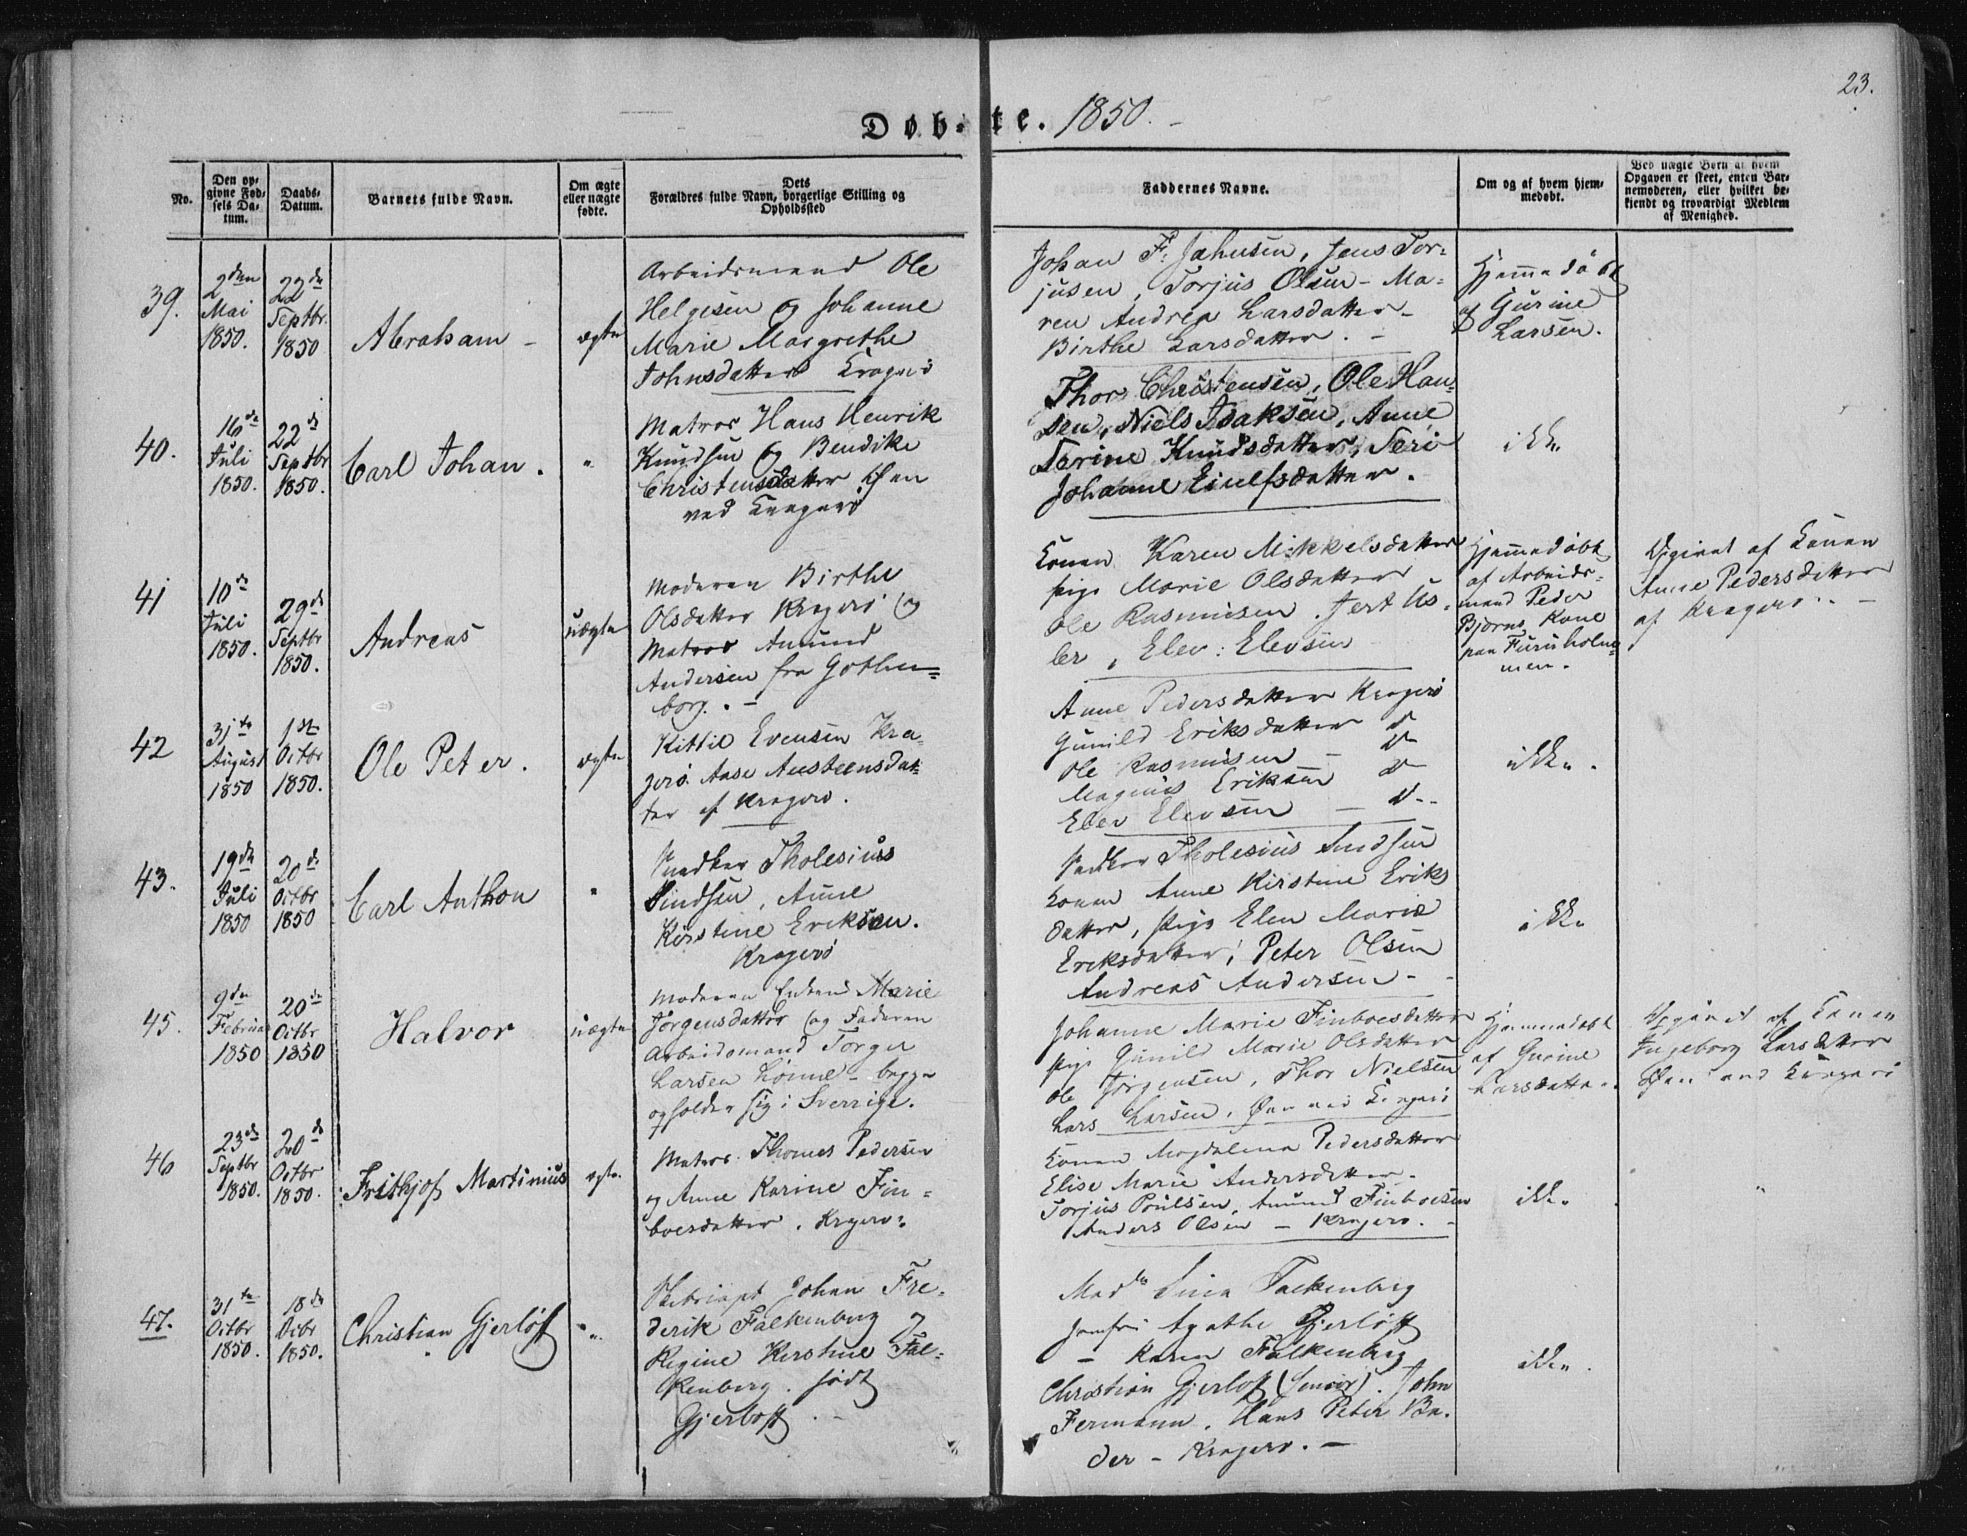 23.
Døb- te. 1850.-
No.
Den op-
givne Fød-
sels Da-
tum.
Daabs-
Datum.
Barnets fulde Navn.
Om ægte
eller uægte
fødte.
Dets
Forældres fulde Navn, borgerlige Stilling og
Opholdssted
Faddernes Navne.
Om og af hvem hjem-
medøbt.
Ved uægte Børn at hvem
Opgaven er skeet, enten Bar-
nemoderen, eller hvilket be-
kjendt og troværdigt Medlem
af Menighed.
39.
2den
Mai
1850.
22de
Septbr.
1850
Abraham -
ægte
Arbeidsmand Ole
Helgesen og Johanne
Marie Margrethe
Johnsdatter Kragerø
Johan F. Jahnsen, Jens Tor-
jusen, Torjus Olsen - Ma-
ren Andrea Larsdatter -
Birthe Larsdatter. -
Hjemmedøbt
af Gurine
Larsen.
40.
16de
Juli
1850.
22de
Septbr
1850.
Carl Johan.
"
Matros Hans Henrik
Knudsen og Bendike
Christensdatter Øen
ved Kragerø
Thor Christensen, Ole Han-
sen, Niels Isaksen, Anne
Terine Knudsdatter, Teri
Johanne Einelfsdatter.
ikke
41
10de
Juli
1850.
29de
Septbr
1850.
Andreas
uægte
Moderen Birthe
Olsdatter Kragerø og
Matros Amund
Andersen fra Gothen-
borg. -
Konen Karen Mikkelsdatter
pige Marie Olsdatter
Ole Rasmusen. Jert Us-
ler, Elev: Elevsen
Hjemmedøbt
af Arbeids-
mand Peder
Bjørns Kone
paa Furuholm-
men.
Opgivet af Konen
Anne Pedersdatter
af Kragerø. -
42
31te
August
1850
1ste
Octbr
1850.
Ole Peter.
ægte
Kittil Evensen Kra-
gerø Aase Austeensdat-
ter af Kragerø.
Anne Pedersdatter Kragerø
Gunild Eriksdatter do
Ole Rasmusen - do
Magnus Eriksen do
Elev Elevsen - do -
ikke.
43.
19de
Juli
1850
20de
Octbr
1850
Carl Anthon
"
Snedker Tholesius
Sindsen, Anne
Kirstine Eriksen.
Kragerø
Snedker Tholesius Sindsen
Konen Anne Kirstine Eriks
datter, pige Elen Marie
Eriksdatter, Peter Olsen
Andreas Andersen -
ikke
45.
9de
Februar
1850
20de
Octbr
1850
Halvor
uægte
Moderen Enken Marie
Jørgensdatter og Faderen
Arbeidsmand Torger
Larsen Lønne - begge
opholder sig i Sverrige.
Johanne Marie Finboesdatter
pige Gunild Marie Olsdatter
Ole Jørgensen, Thor Nielsen
Lars Larsen, Øen ved Kragerø
Hjemmedøbt
af Gurine
Larsdatter.
Opgivet af Konen
Ingeborg Larsdatter
Øen ved Kragerø
46
23de
Septbr
1850.
20de
Octbr
1850.
Frithjof Martinius
ægte.
Matros Thomes Pedersen
og Anne Karine Fin-
boesdatter. Kragerø.
Konen Magdalena Pedersdatter
Elise Marie Andersdatter -
Torjus Poulsen, Amund Finboesen
Anders Olsen - Kragerø. -
ikke
"
47.
31te
Octbr
1850.
18de
Decbr
1850.
Christian Gjerløff
"
Johan Fre-
derik Falkenberg og
Regine Kirstine Fal-
kenberg. født
Gjerløff. -
Madm Lina Falkenberg
Jomfru Agathe Gjerløff
- Karen Falkenberg
Christian Gjerløff (Senior). John
Fermann. Hans Peter Ba-
der - Kragerø. -
ikke.